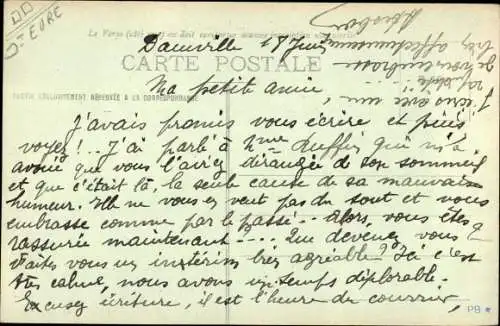 Dt EURE
Damville 18 Juin
CARTE POSTALE
Ma petite amie
PARTIE EXCLUSIVEMENT RÉSERVÉE A LA CORRESPONDANCE
J'avais promis vous écrire et puis
voyez!.. J'ai parlé à Mme Ruffin qui m'a
avoué que vous l'aviez dérangée de son sommeil
et que c'était là, la seule cause de sa mauvaise
humeur. Elle ne vous en veut pas du tout et vous
embrasse comme par le passé... Alors, vous êtes
rassurée maintenant.... Que devenez vous?
Faites vous un intérim très agréable? Ici c'est
très calme, nous avons un temps déplorable.
Excusez écriture, il est l'heure du courrier,
Je vous embrasse
très affectueusement
PB